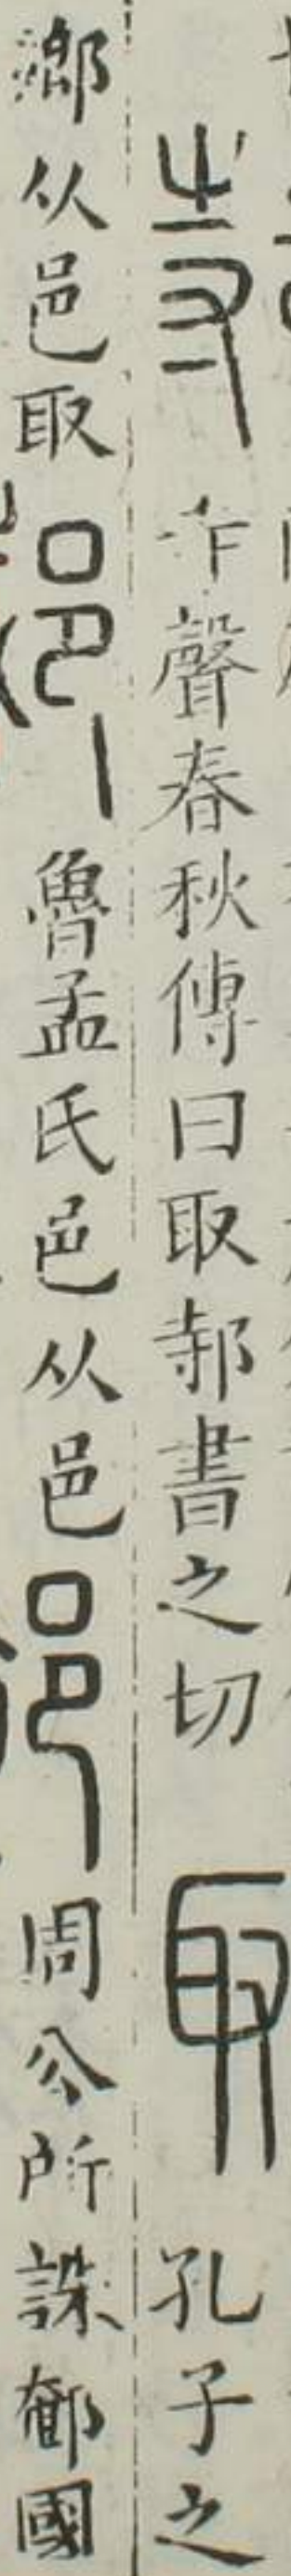 寺 聲春秋傳曰取邿書之切 取 孔子之
鄉从邑取 邑 魯孟氏邑从邑 邑 周公所誅郁國